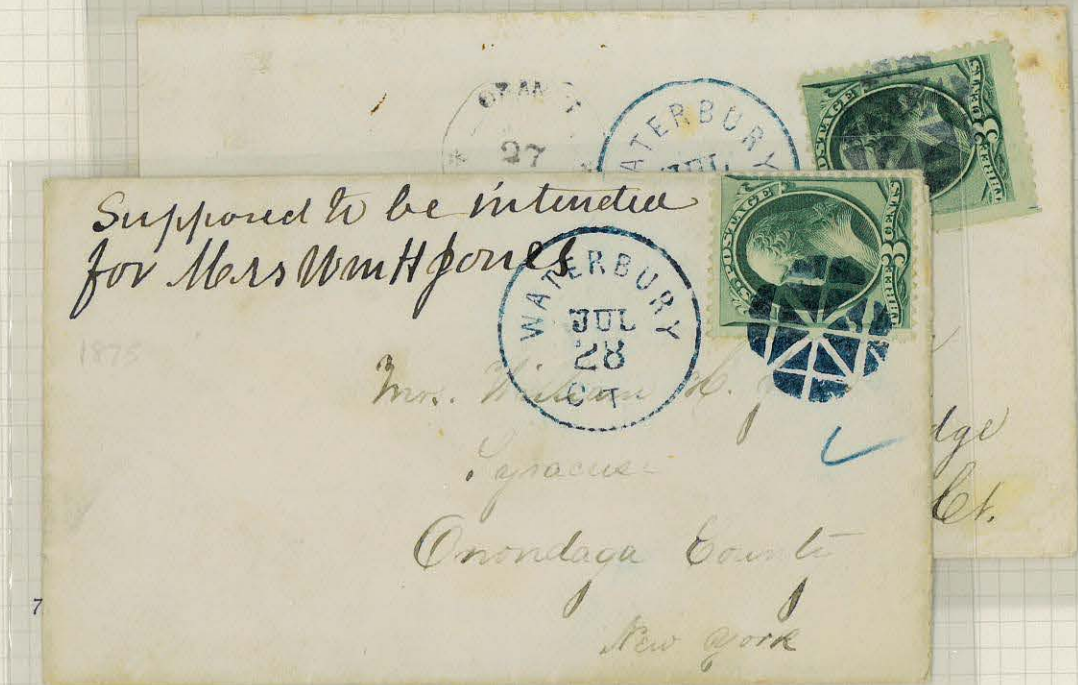 ORANGE
27
WATERBURY
JUL
POSTAGE
3
CENTS
THREE
Supposed to be intended
for Mrs Wm H Jones
WATERBURY
JUL
28
CT
U.S. POSTAGE
3
CENTS
THREE
1875
Mrs. William H.
Syracuse
Onondaga County
New York
dge
Ct.
7